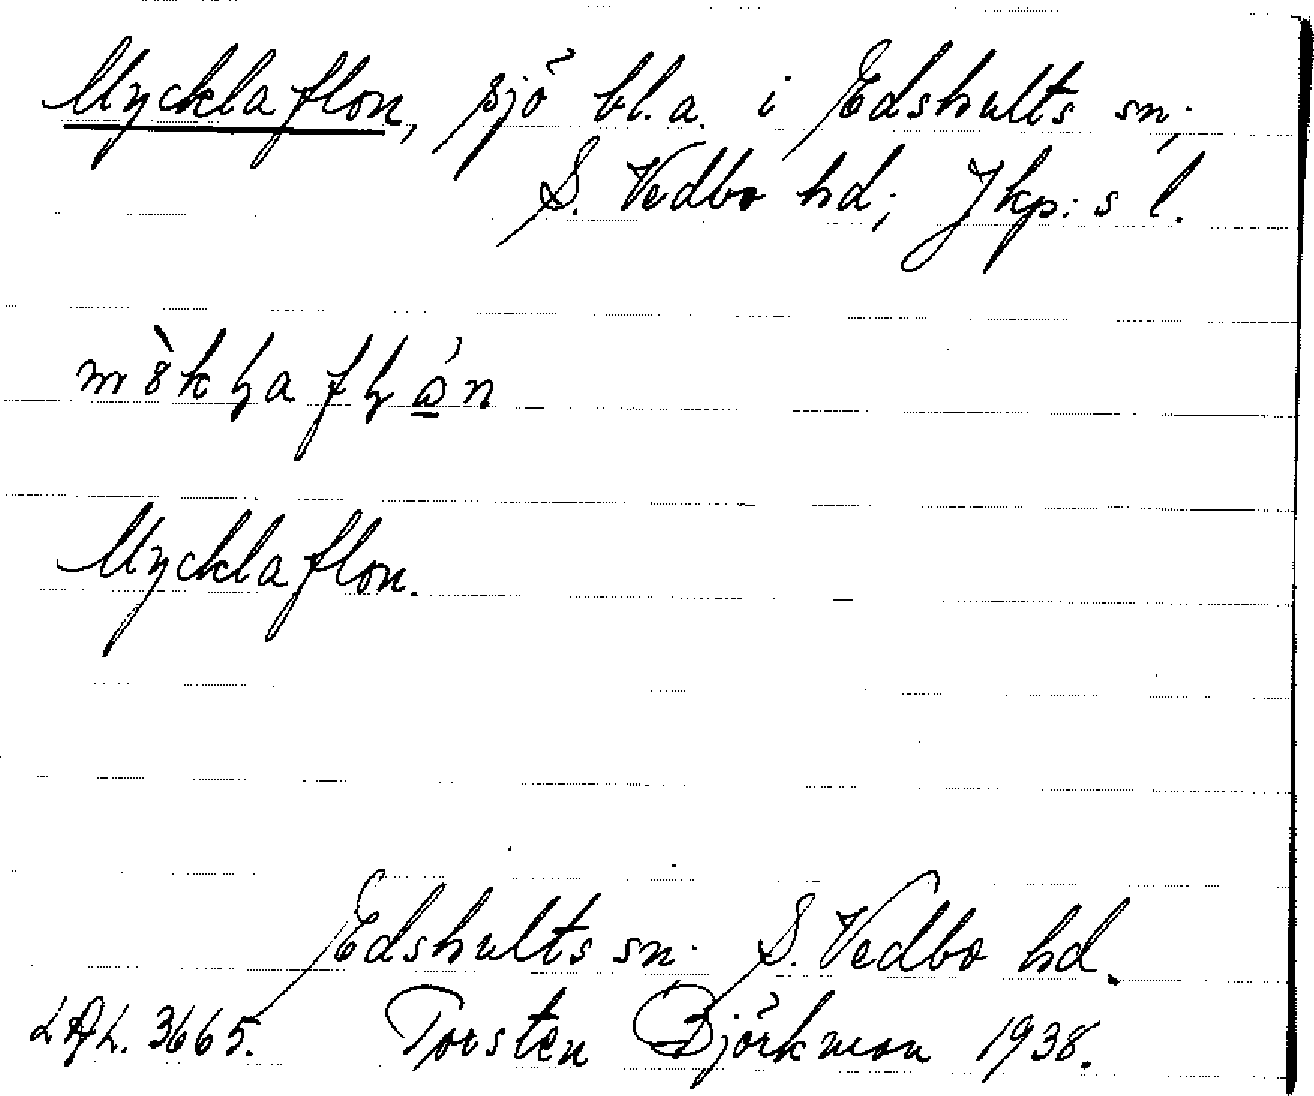 Mycklaflon, sjö bl.a. i Edshults sn,
S. Vedbo hd; Jkp:s l.
Mycklaflon.
Edshults sn. S. Vedbo hd.
LAL. 3665. Torsten Björkman 1938.